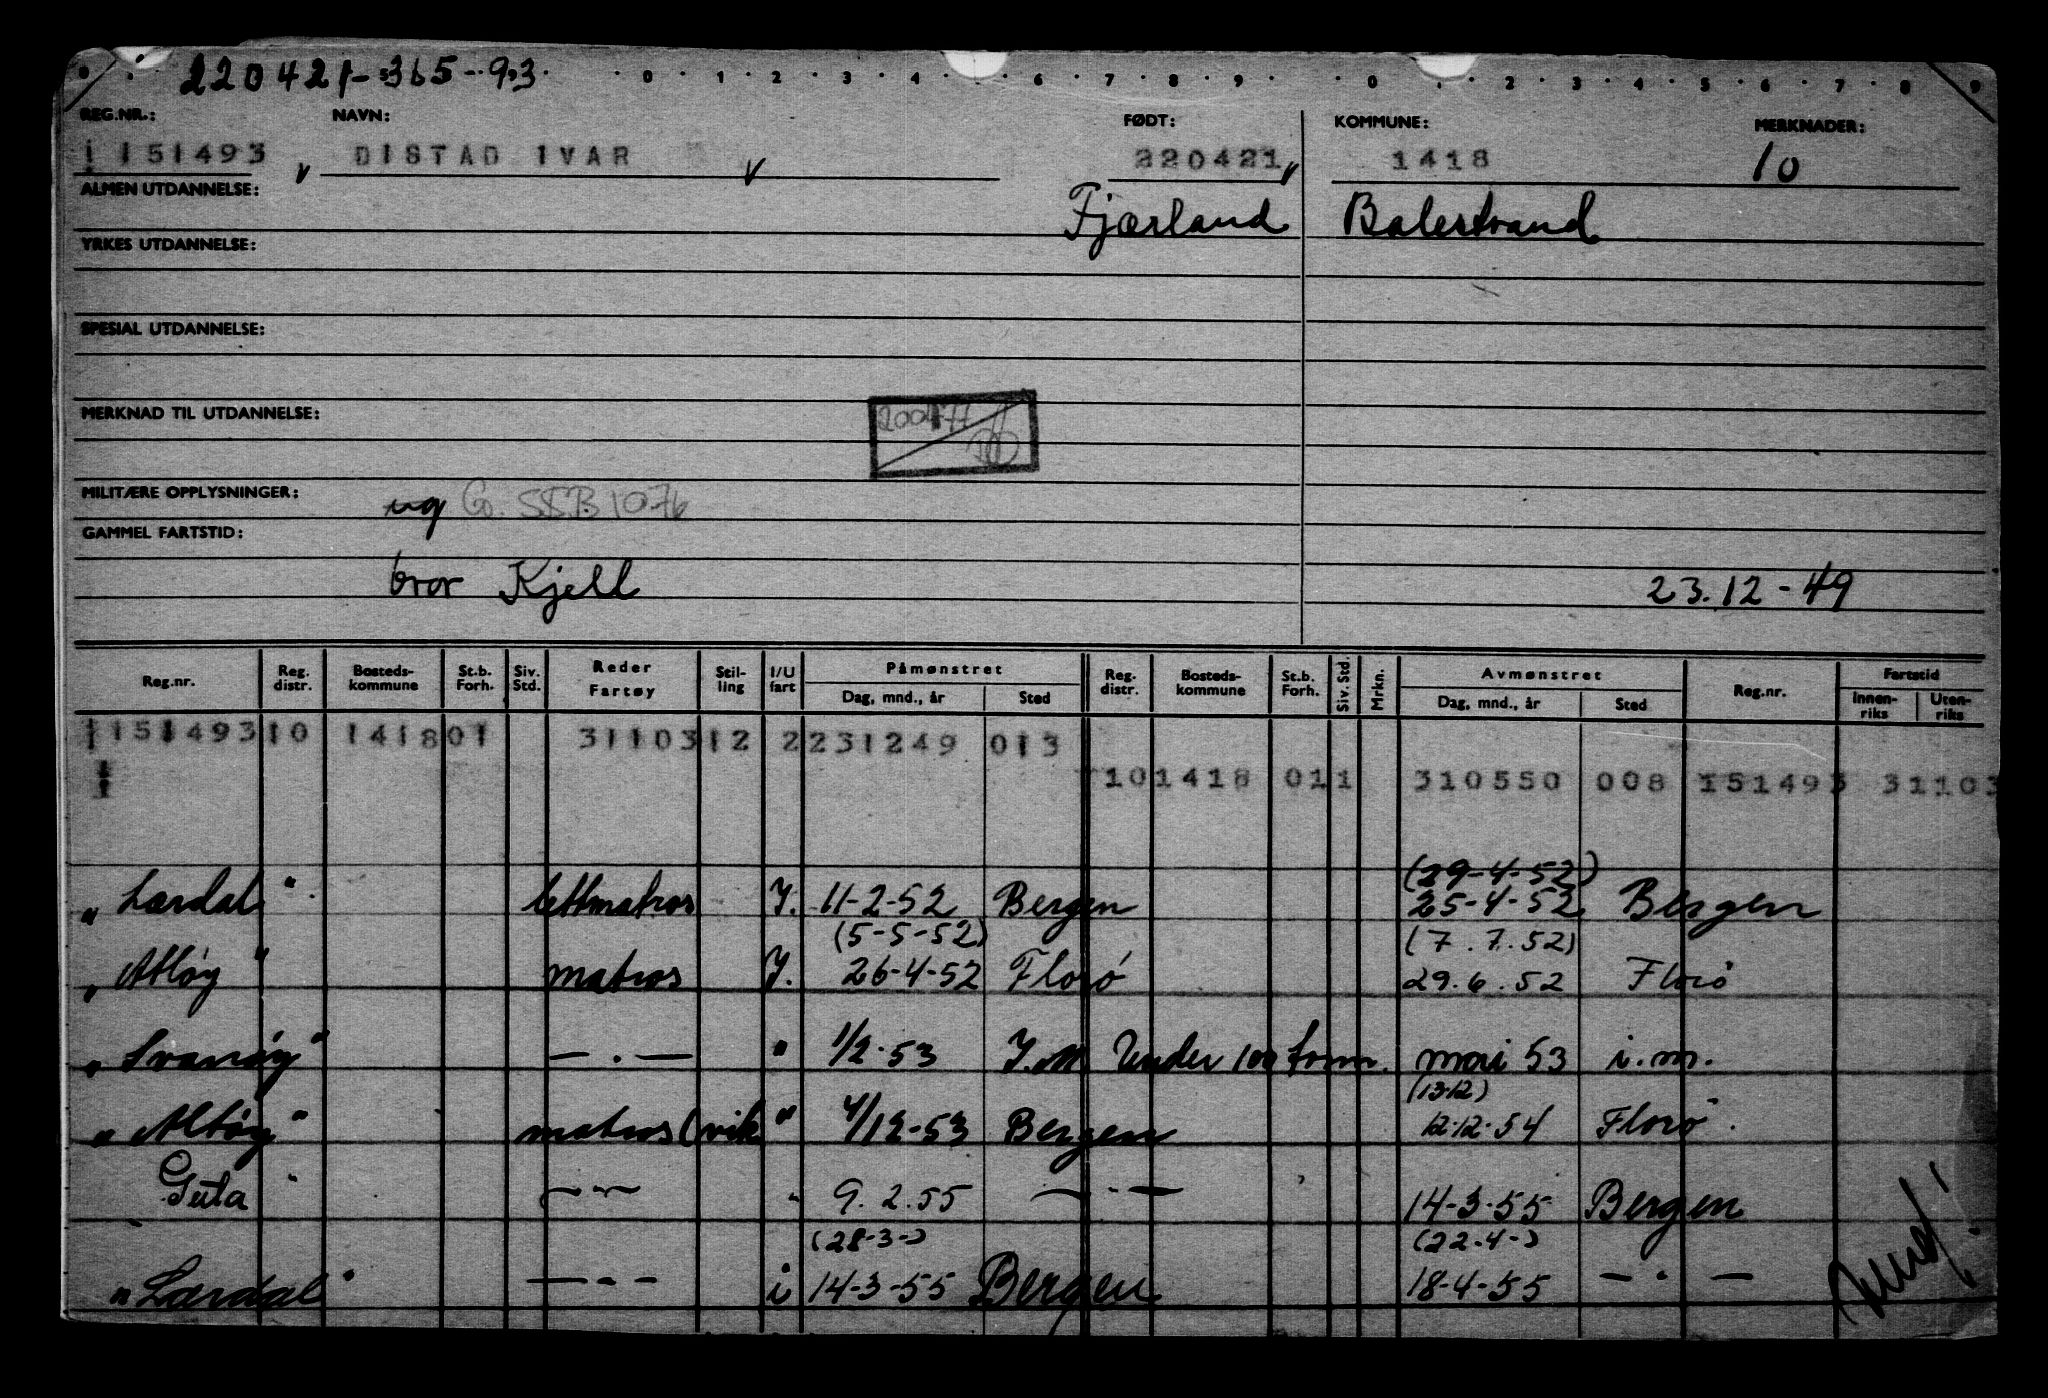 220421-365-93
0 1 2 3 4 6 7 8 9 0 2 3 4 5 6 7 8 9
REG.NR.: NAVN: FØDT: KOMMUNE: MERKNADER:
151493 DISTAD IVAR 220421 1418 10
ALMEN UTDANNELSE: Fjærland Balestrand
YRKES UTDANNELSE:
SPESIAL UTDANNELSE:
MERKNAD TIL UTDANNELSE: 200477
MILITÆRE OPPLYSNINGER: ug G. SSB 1076
GAMMEL FARTSTID:
bror Kjell 23.12-49
Reg.nr. Reg. distr. Bosteds-kommune St.b. Forh. Siv. Std. Reder Fartøy Stil-ling I/U fart Påmønstret Dag, mnd., år Sted Reg. distr. Bosteds-kommune St.b. Forh. Siv. Std. Mrkn. Avmønstret Dag, mnd., år Sted Reg.nr. Fartstid Innen-riks Uten-riks
151493 10 1418 01 31103 12 2 231249 013
10 1418 01 1 310550 008 151493 31103
(29-4-52)
"Lærdal" lettmatros I. 11-2-52 Bergen 25-4-52 Bergen
(5-5-52) (7.7.52)
"Atløy" matros I. 26-4-52 Florø 29.6.52 Florø
"Svanøy" — . — " 1/2-53 I.M. Under 100 tonn. mai 53 i.m.
(13.12)
"Atløy" matros (vik " 4/12-53 Bergen 12.12.54 Florø.
Guta" —"— " 9.2.55 — " — 14-3-55 Bergen
(28-3-) (22.4-)
"Lærdal" — " — i 14-3-55 Bergen 18-4-55 — " —